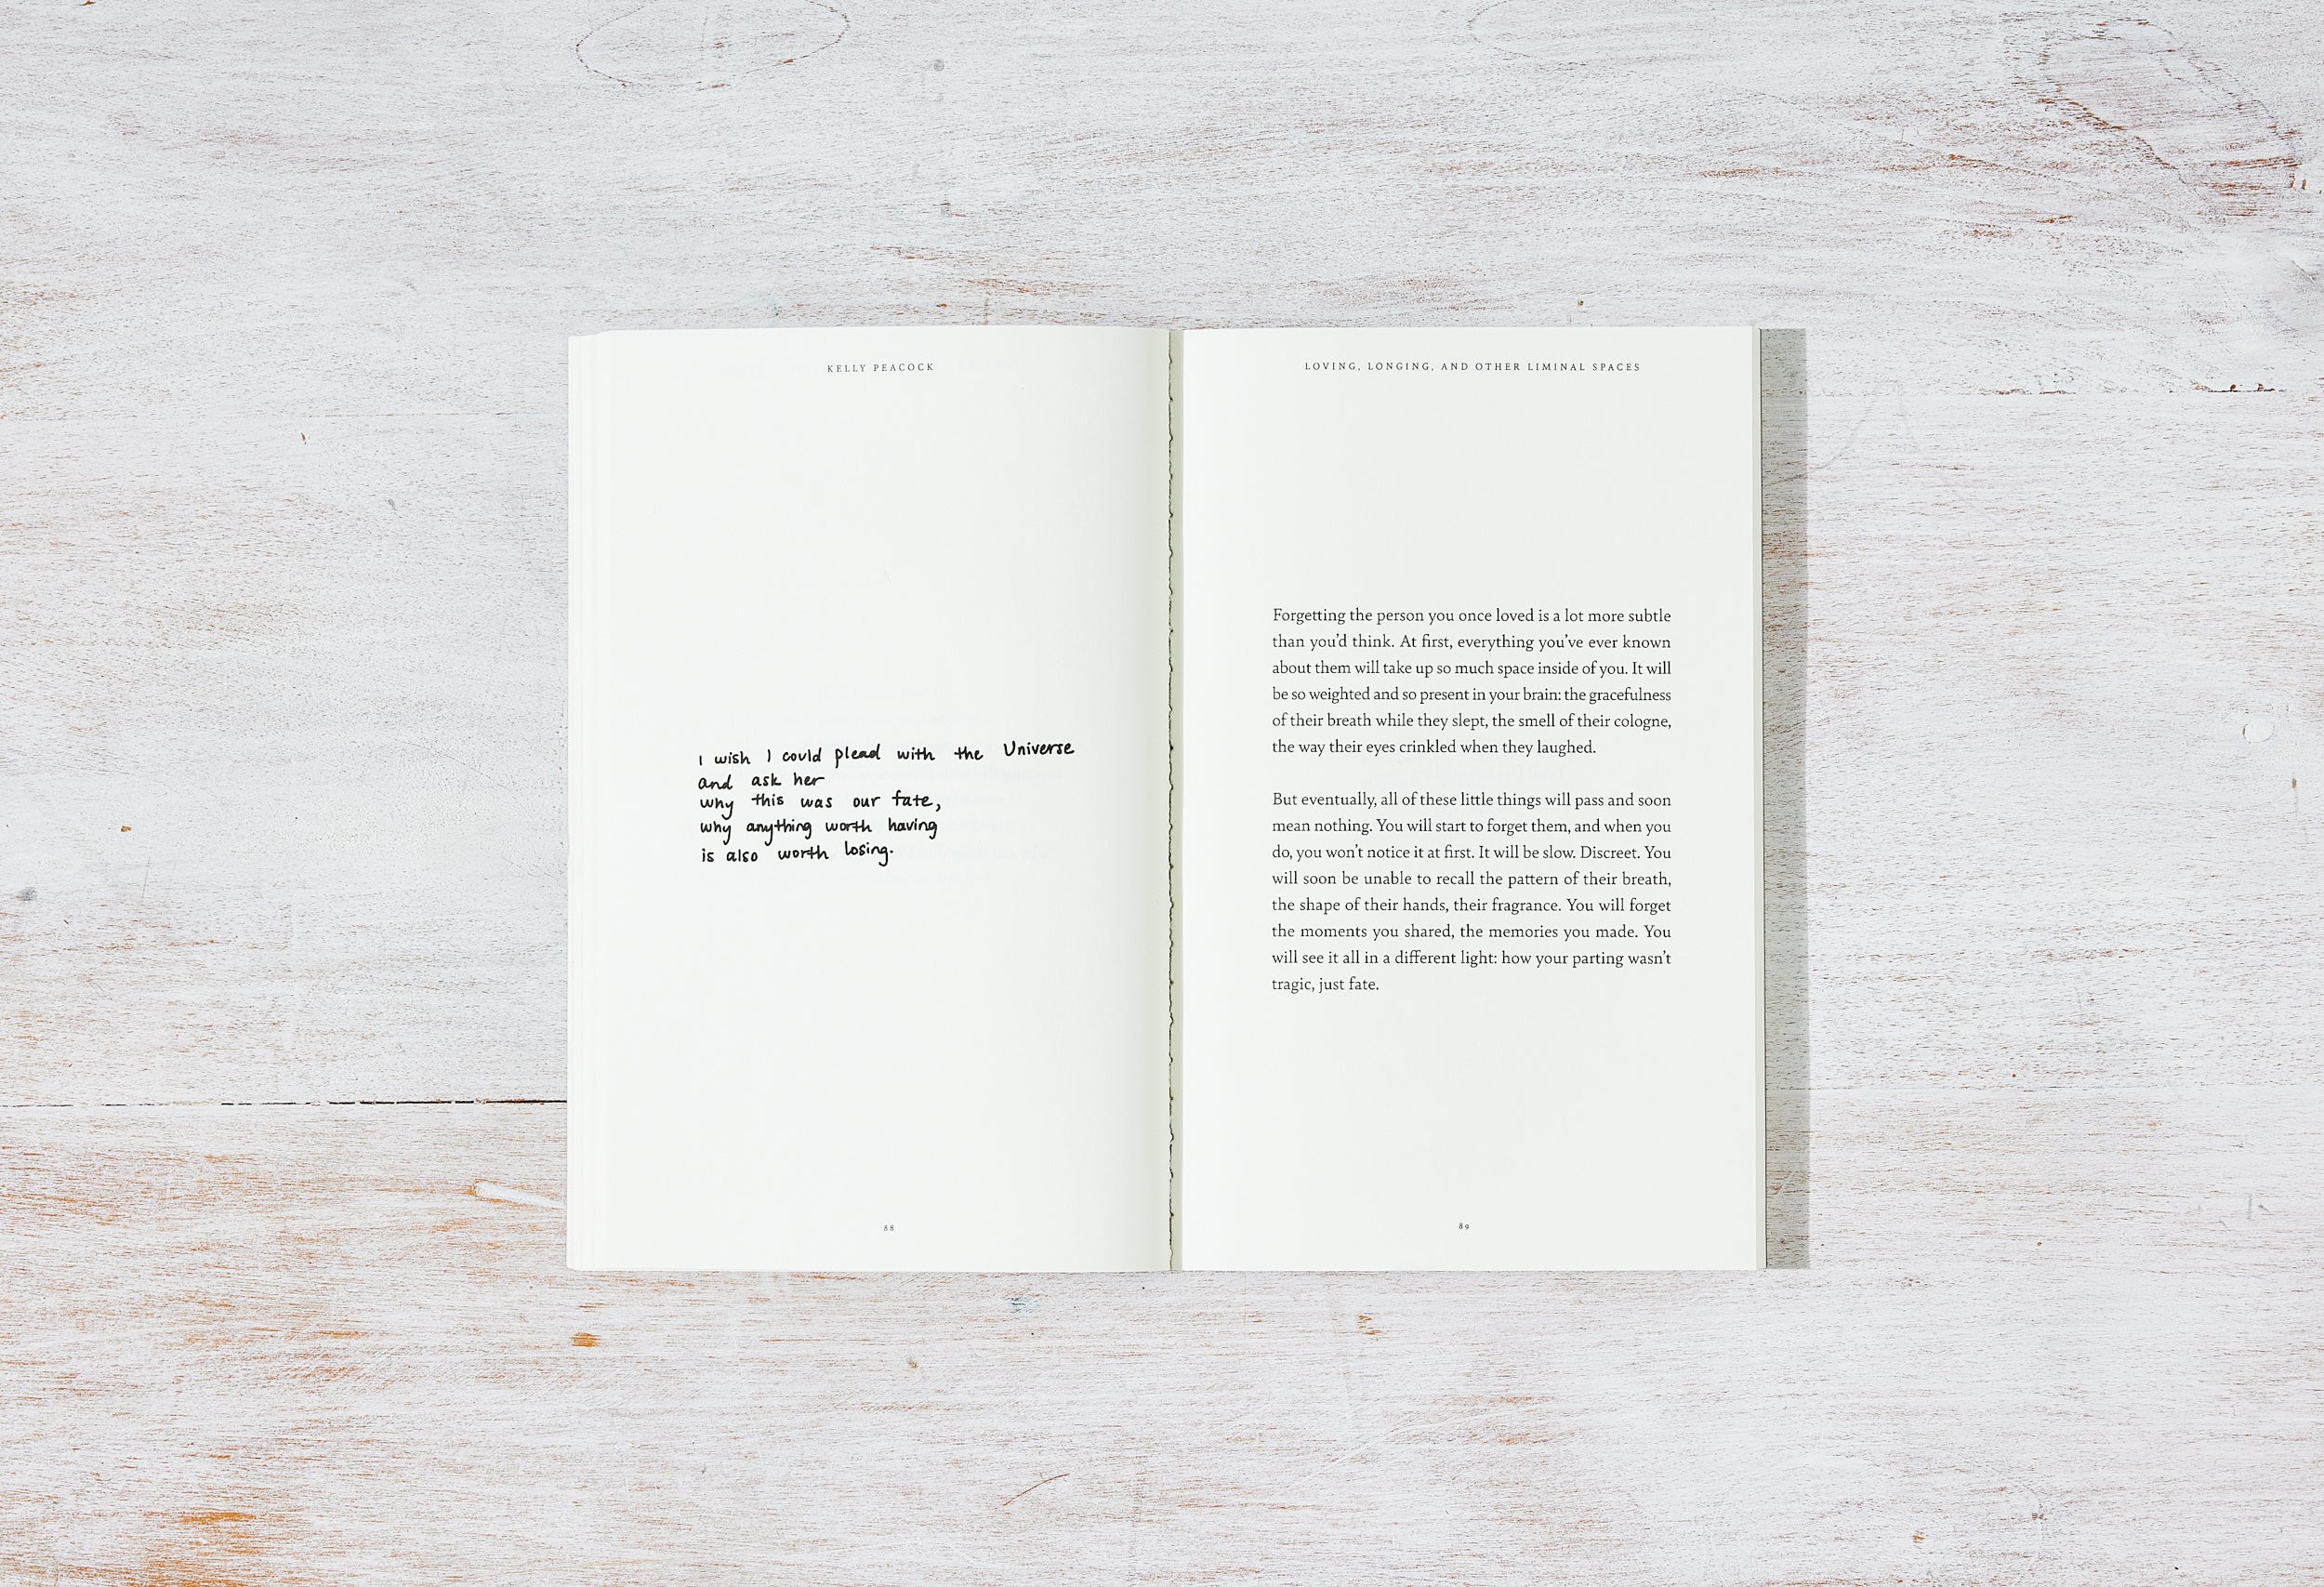 KELLY PEACOCK
I wish I could plead with the Universe
and ask her
why this was our fate,
why anything worth having
is also worth losing.
88
LOVING, LONGING, AND OTHER LIMINAL SPACES
Forgetting the person you once loved is a lot more subtle
than you’d think. At first, everything you’ve ever known
about them will take up so much space inside of you. It will
be so weighted and so present in your brain: the gracefulness
of their breath while they slept, the smell of their cologne,
the way their eyes crinkled when they laughed.
But eventually, all of these little things will pass and soon
mean nothing. You will start to forget them, and when you
do, you won’t notice it at first. It will be slow. Discreet. You
will soon be unable to recall the pattern of their breath,
the shape of their hands, their fragrance. You will forget
the moments you shared, the memories you made. You
will see it all in a different light: how your parting wasn’t
tragic, just fate.
89